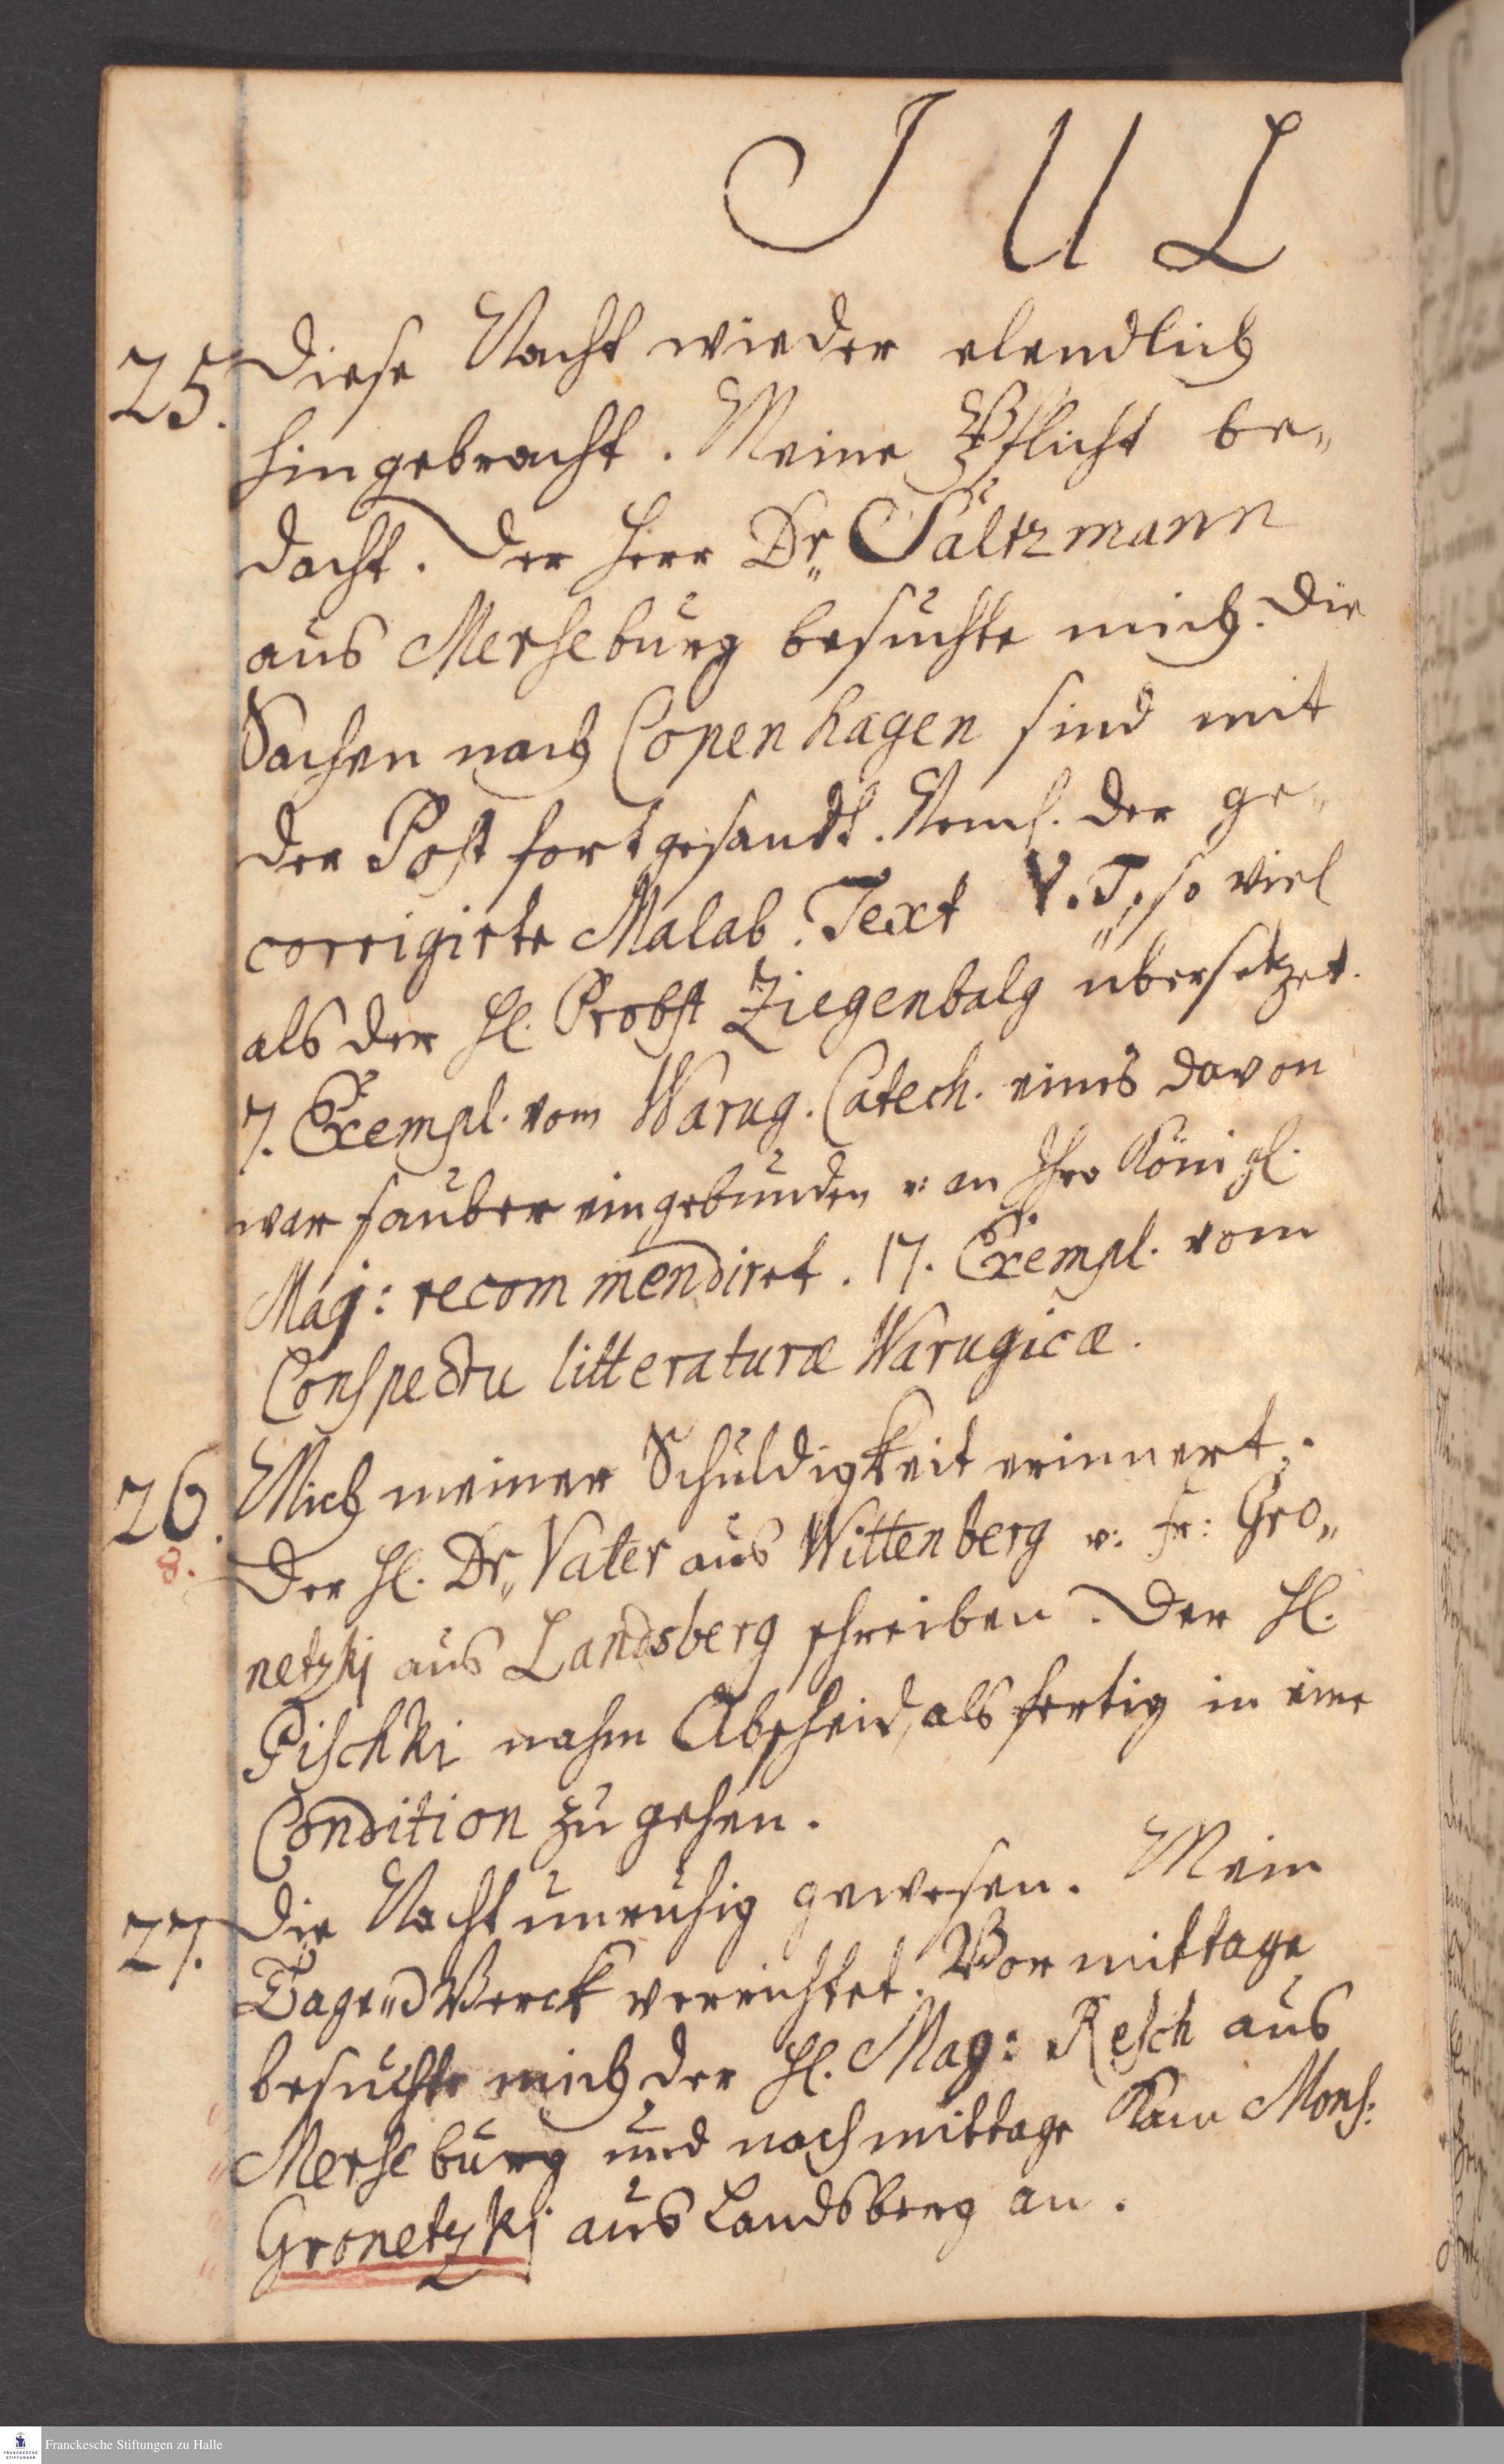 J U L
25. Diese Nacht wieder elendlich
hingebracht. Meine Pflicht be„
dacht. Der Herr Dr„ Saltzmann
aus Merseburg besuchte mich. Die
Sachen nach Copenhagen sind mit
der Post fortgesandt. Neml. der ge„
corrigirte Malab. Text V. T„, so viel
als der Hl. Probst Ziegenbalg übersetzet.
7. Exempl. vom Warug. Catech. eines davon
war sauber eingebunden u: an Ihro Königl.
Maj: recommendiret. 17. Exempl. vom
Conspectu litteraturæ Warugicæ.
26. Mich meiner Schuldigkeit erinnert.
8. Der Hl. Dr„ Vater aus Wittenberg u: Fr: Gro„
netzkj aus Landsberg schreiben. Der Hl.
Pischki nahm Abscheid, als fertig in eine
Condition zu gehen.
27. Die Nacht unruhig gewesen. Mein
Tage„Werck verrichtet. Vormittage
besuchte mich der Hl. Mag: Resch aus
Merseburg und nachmittage kam Mons:
Gronetzkj aus Landsberg an.
Franckesche Stiftungen zu Halle